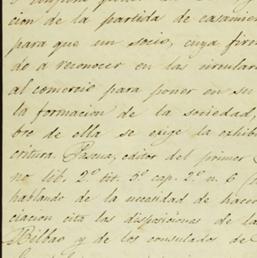 cion de la partida de casamien
para que un socio, cuya firm
do a reconocer en las circulare
al comercio para poner en su
la formacion de la sociedad,
bre de ella se exige la exhib
critura. Pascua, editor del primer
no lib. 2º tit. 5º cap. 2º n. 6
hablando de la necesidad de hacer
ciacion cita las disposiciones de la
Bilbao y de los consulados de